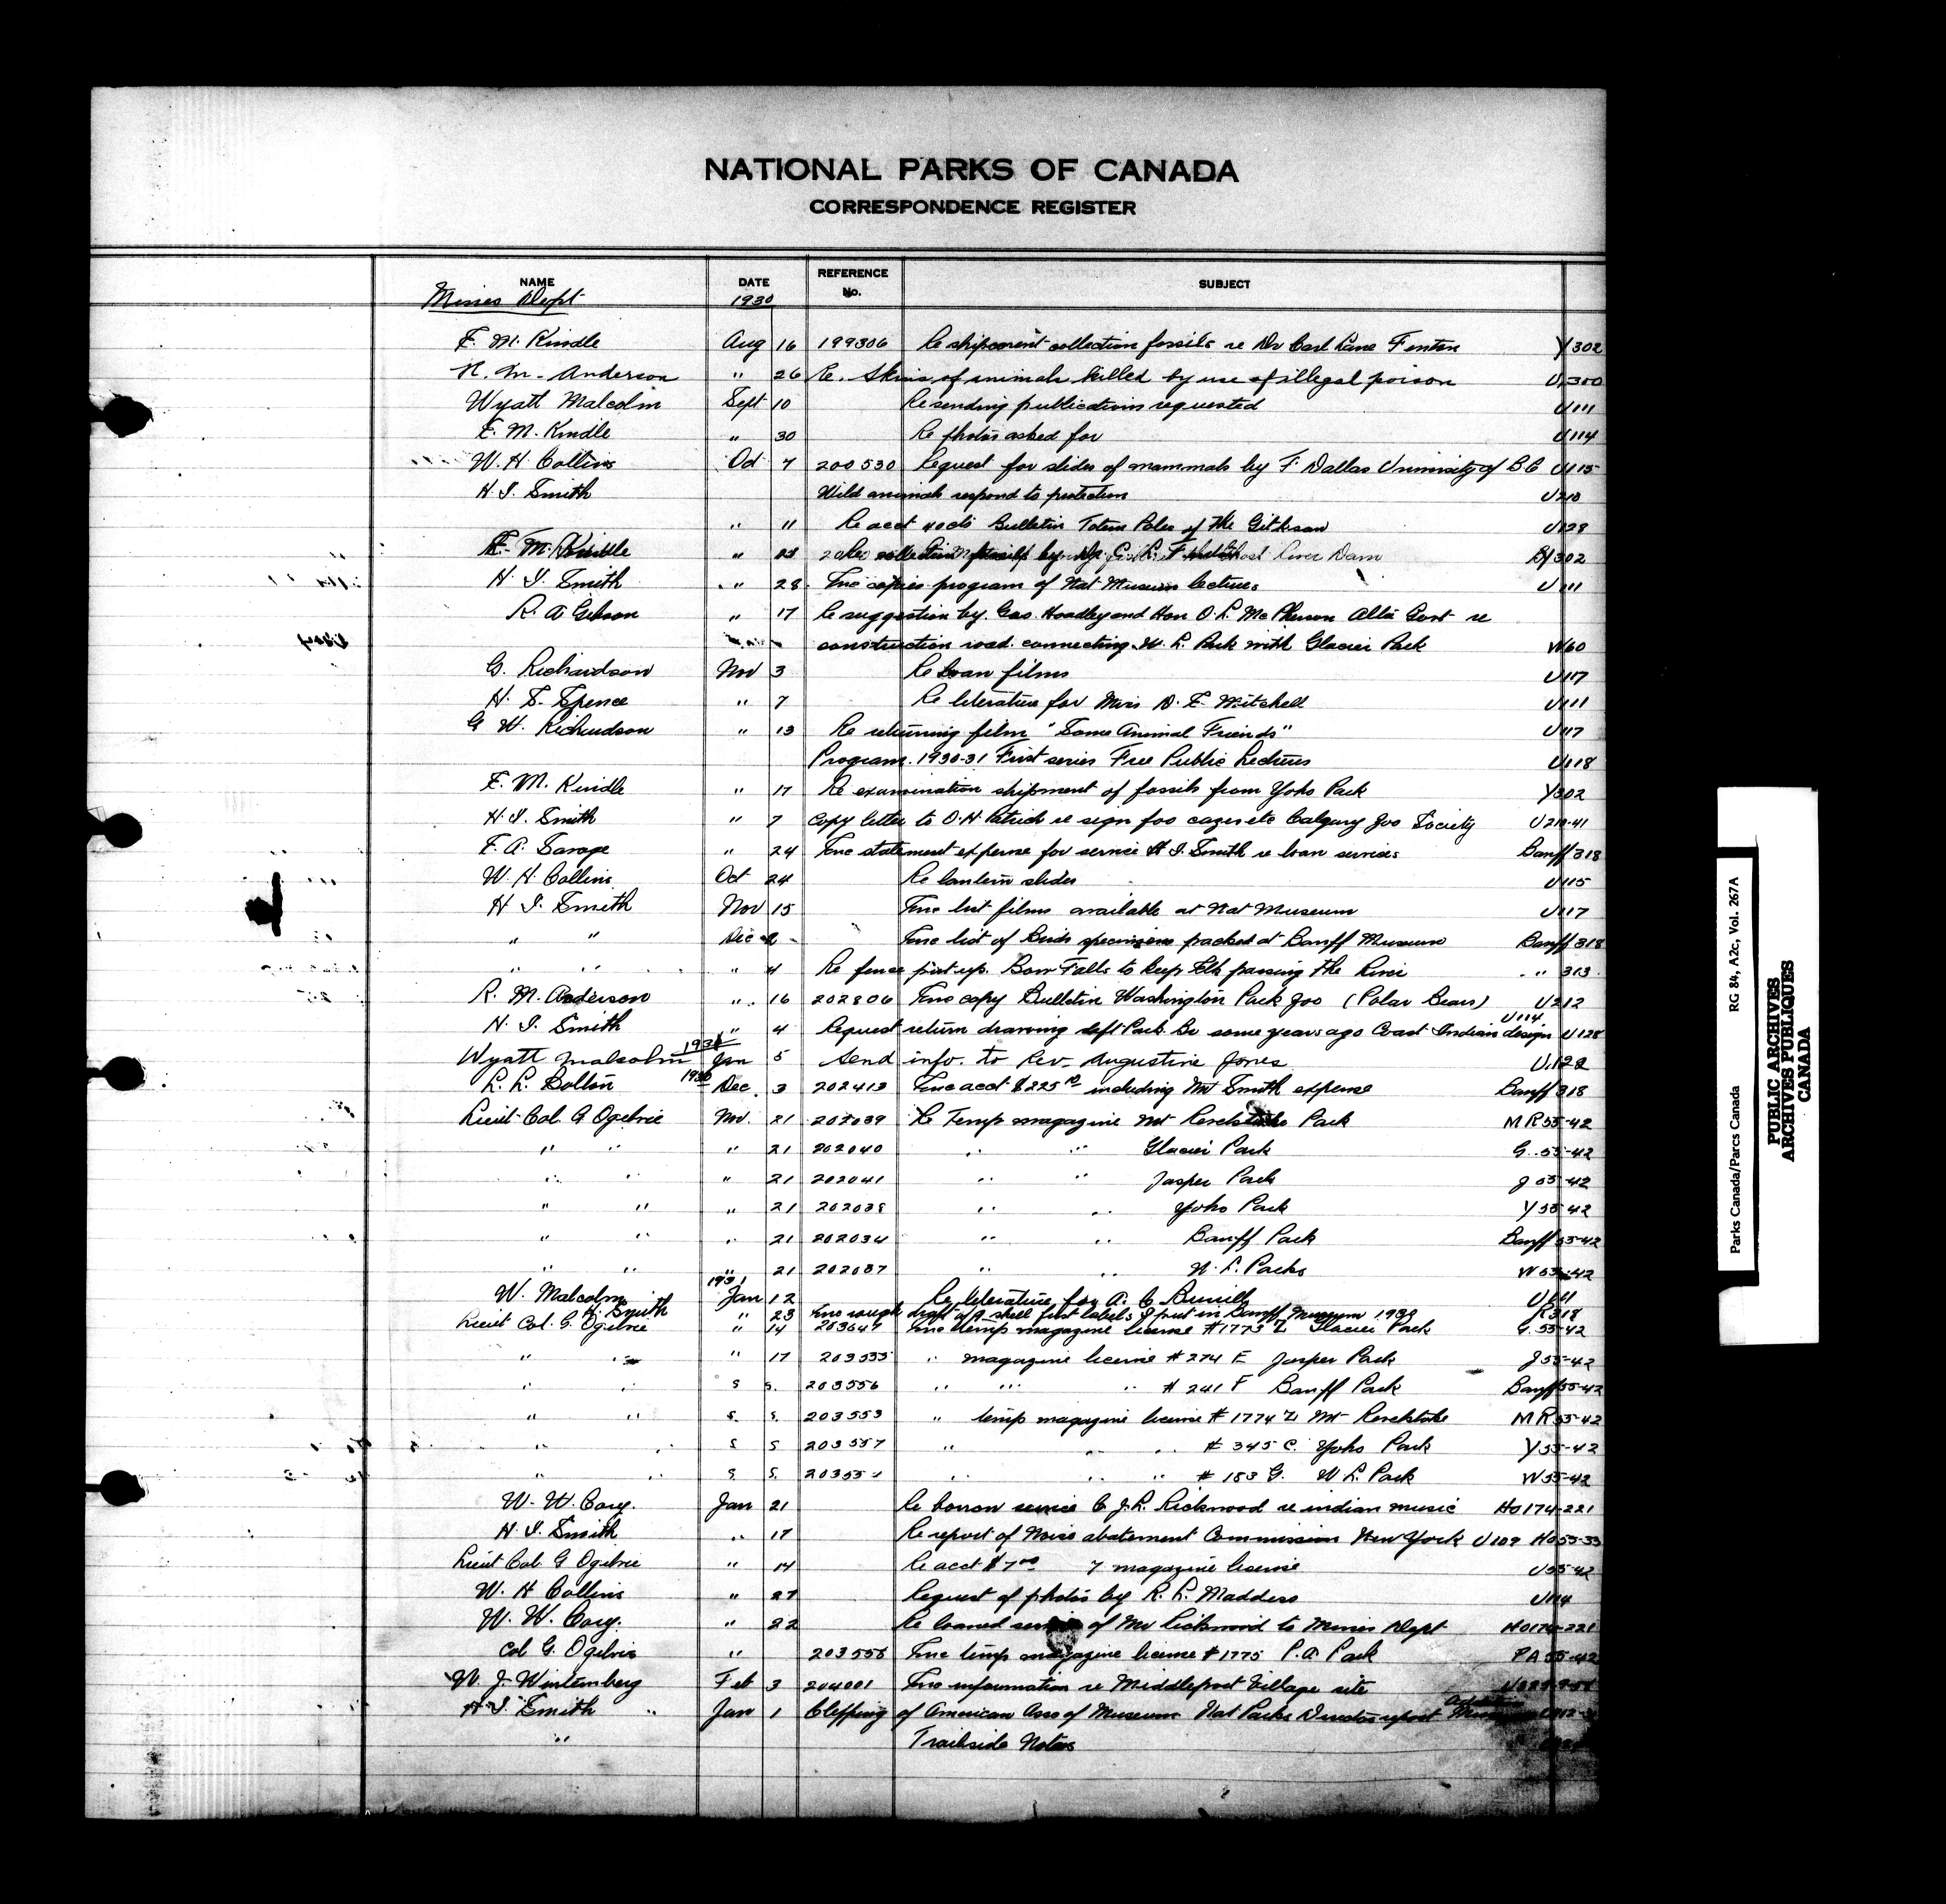 NATIONAL PARKS OF CANADA
CORRESPONDENCE REGISTER
NAME DATE REFERENCE No. SUBJECT
Mines Dept 1930
E. M. Kindle Aug 16 199306 Re shipment collection fossils re Dr Carl Lane Fenton Y302
R. M. Anderson " 26 Re. Skins of animals killed by use of illegal poison U300
Wyatt Malcolm Sept 10 Re sending publications requested U111
E. M. Kindle " 30 Re photos asked for U114
W. H. Collins Oct 7 200530 Request for slides of mammals by F. Dallas University of BC U115
H. I. Smith Wild animals respond to protection U210
" 11 Re acct Bulletin Totem Poles of the Gitksan U128
E. M. Kindle " River Dam 302
H. I. Smith " 28 Enc copies program of Nat Museum lectures U111
R. A Gibson " 17 Re suggestion by Geo. Hoadley and Hon O. L. McPherson Alta Govt re
construction road connecting W. L. Park with Glacier Park W60
G. Richardson Nov 3 Re loan films U117
H. S. Spence " 7 Re literature for Miss D. E. Mitchell U111
G W. Richardson " 13 Re returning film "Some Animal Friends" U117
Program 1930-31 First series Free Public Lectures U118
E. M. Kindle " 17 Re examination shipment of fossils from Yoho Park Y302
H. I. Smith " 7 Copy letter to O. H. Patrick re sign for cages etc Calgary Zoo Society U210-41
F. A. Savage " 24 Enc statement expense for service H I. Smith re loan services Banff 318
W. H. Collins Oct 24 Re lantern slides U115
H I. Smith Nov 15 Enc list films available at Nat Museum U117
" " Dec 2 Enc list of Birds specimens packed at Banff Museum Banff 318
" " " 4 Re fence put up. Bow Falls to keep Elk passing the River " 313
R. M. Anderson " 16 202806 Enc copy Bulletin Washington Park Zoo (Polar Bears) U212
H. I. Smith " 4 Request return drawing left Park Br some years ago Coast Indian design U114 U128
Wyatt Malcolm 1931 Jan 5 Send info. to Rev. Augustine Jones U.128
L. L. Bolton 1930 Dec. 3 202413 Enc acct $225 including Mr Smith expense Banff 318
Lieut-Col. G Ogilvie Nov. 21 202039 Re Temp magazine Mt Revelstoke Park M R 55-42
" " " 21 202040 " " Glacier Park G. 55-42
" " " 21 202041 " " Jasper Park J 55-42
" " " 21 202038 " " Yoho Park Y 55-42
" " " 21 202034 " " Banff Park Banff 55-42
" " " 21 202037 " " W. L. Parks W 55-42
W. Malcolm 1931 Jan 12 Re literature for A. C. U111
H. Smith " 23 Enc rough draft of labels I put in Banff Museum 1930 318
Lieut Col. G. Ogilvie " 14 Enc temp magazine license #1773 Z Glacier Park G. 55-42
" " " 17 203555 " magazine license # 274 E Jasper Park J 55-42
" " s s. 203556 " " " # 241 F Banff Park Banff 55-42
" " s. s. 203553 " temp magazine license # 1774 Z Mt Revelstoke M R 55-42
" " s s 203557 " " " # 345 C. Yoho Park Y 55-42
" " s s. " " " # 183 G. W L. Park W 55-42
W. W. Cory. Jan 21 Re borrow service C J. R. Rickwood re indian music Ho174-221
H. I. Smith " 17 Re report of Noise abatement Commission New York U109 Ho55-33
Lieut Col. G Ogilvie " 14 Re acct $7.00 7 magazine license U55-42
W. H Collins " 27 Request of photos by R. L. Madders U114
W. W. Cory. " 22 Re loaned service of Mr Rickwood to Mines Dept Ho174-221
Col G. Ogilvie " 203558 Enc temp magazine license #1775 P. A Park PA 55-42
W. J. Wintemberg Feb 3 204001 Enc information re Middleport Village site
H I. Smith " Jan 1 Clipping of American Ass of Museum Nat Parks Director report
" Trailside Notes
RG 84, A2c, Vol. 267A
Parks Canada/Parcs Canada
PUBLIC ARCHIVES
ARCHIVES PUBLIQUES
CANADA